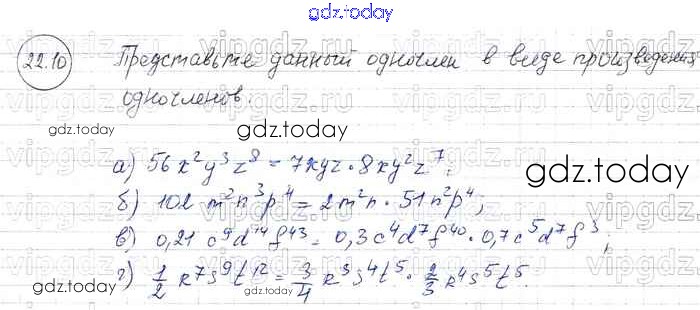 gdz.today
22.10 Представьте данный одночлен в виде произведения
одночленов.
gdz.today
gdz.today
а) 56x²y³z⁸ = 7xyz · 8xy²z⁷;
gdz.today
б) 102 m²n³p⁴ = 2m²n · 51n²p⁴;
в) 0,21 c⁹d¹⁴f⁴³ = 0,3c⁴d⁷f⁴⁰ · 0,7c⁵d⁷f³;
г) 1/2 k⁷s⁹t¹² = 3/4 k³s⁴t⁵ · 2/3 k⁴s⁵t⁵.
gdz.today
gdz.today